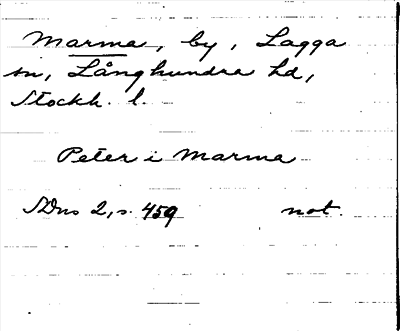 Marma, by, Lagga
sn, Långhundra hd,
Stockh. l.
Peter i Marma
SDns 2, s. 459 not.